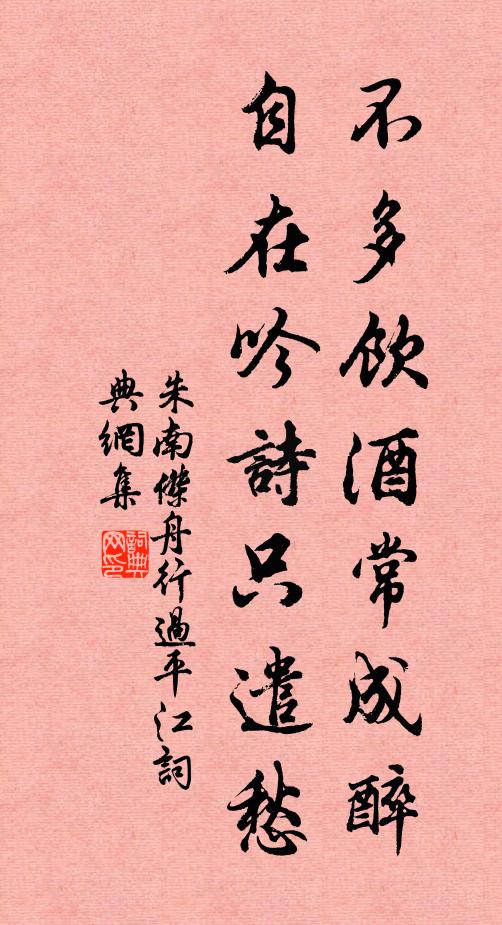 不多飲酒常成醉
自在吟詩只遣愁
朱南傑舟行過平江詞
典網集
詞典
网印